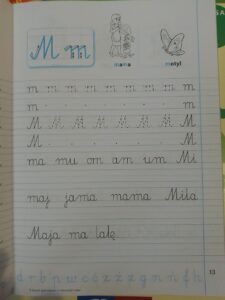 M m
mama motyl
m m m m m m m m
m m
M M M M M M M M
M M
ma mu om am um Mi
maj jama mama Miła
Maja ma lalę
13